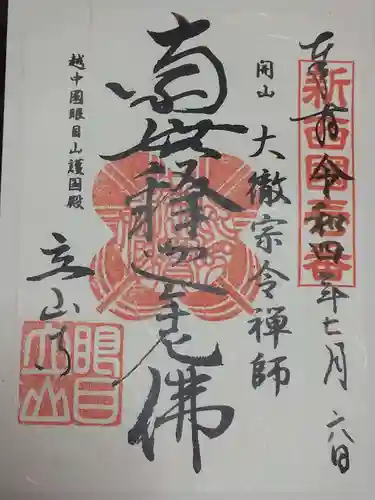 奉拝 令和四年七月 八日
新西國 番
開山 大徹宗令禅師
南無釋迦牟尼佛
越中國眼目山護国殿
立山寺
眼目
立山